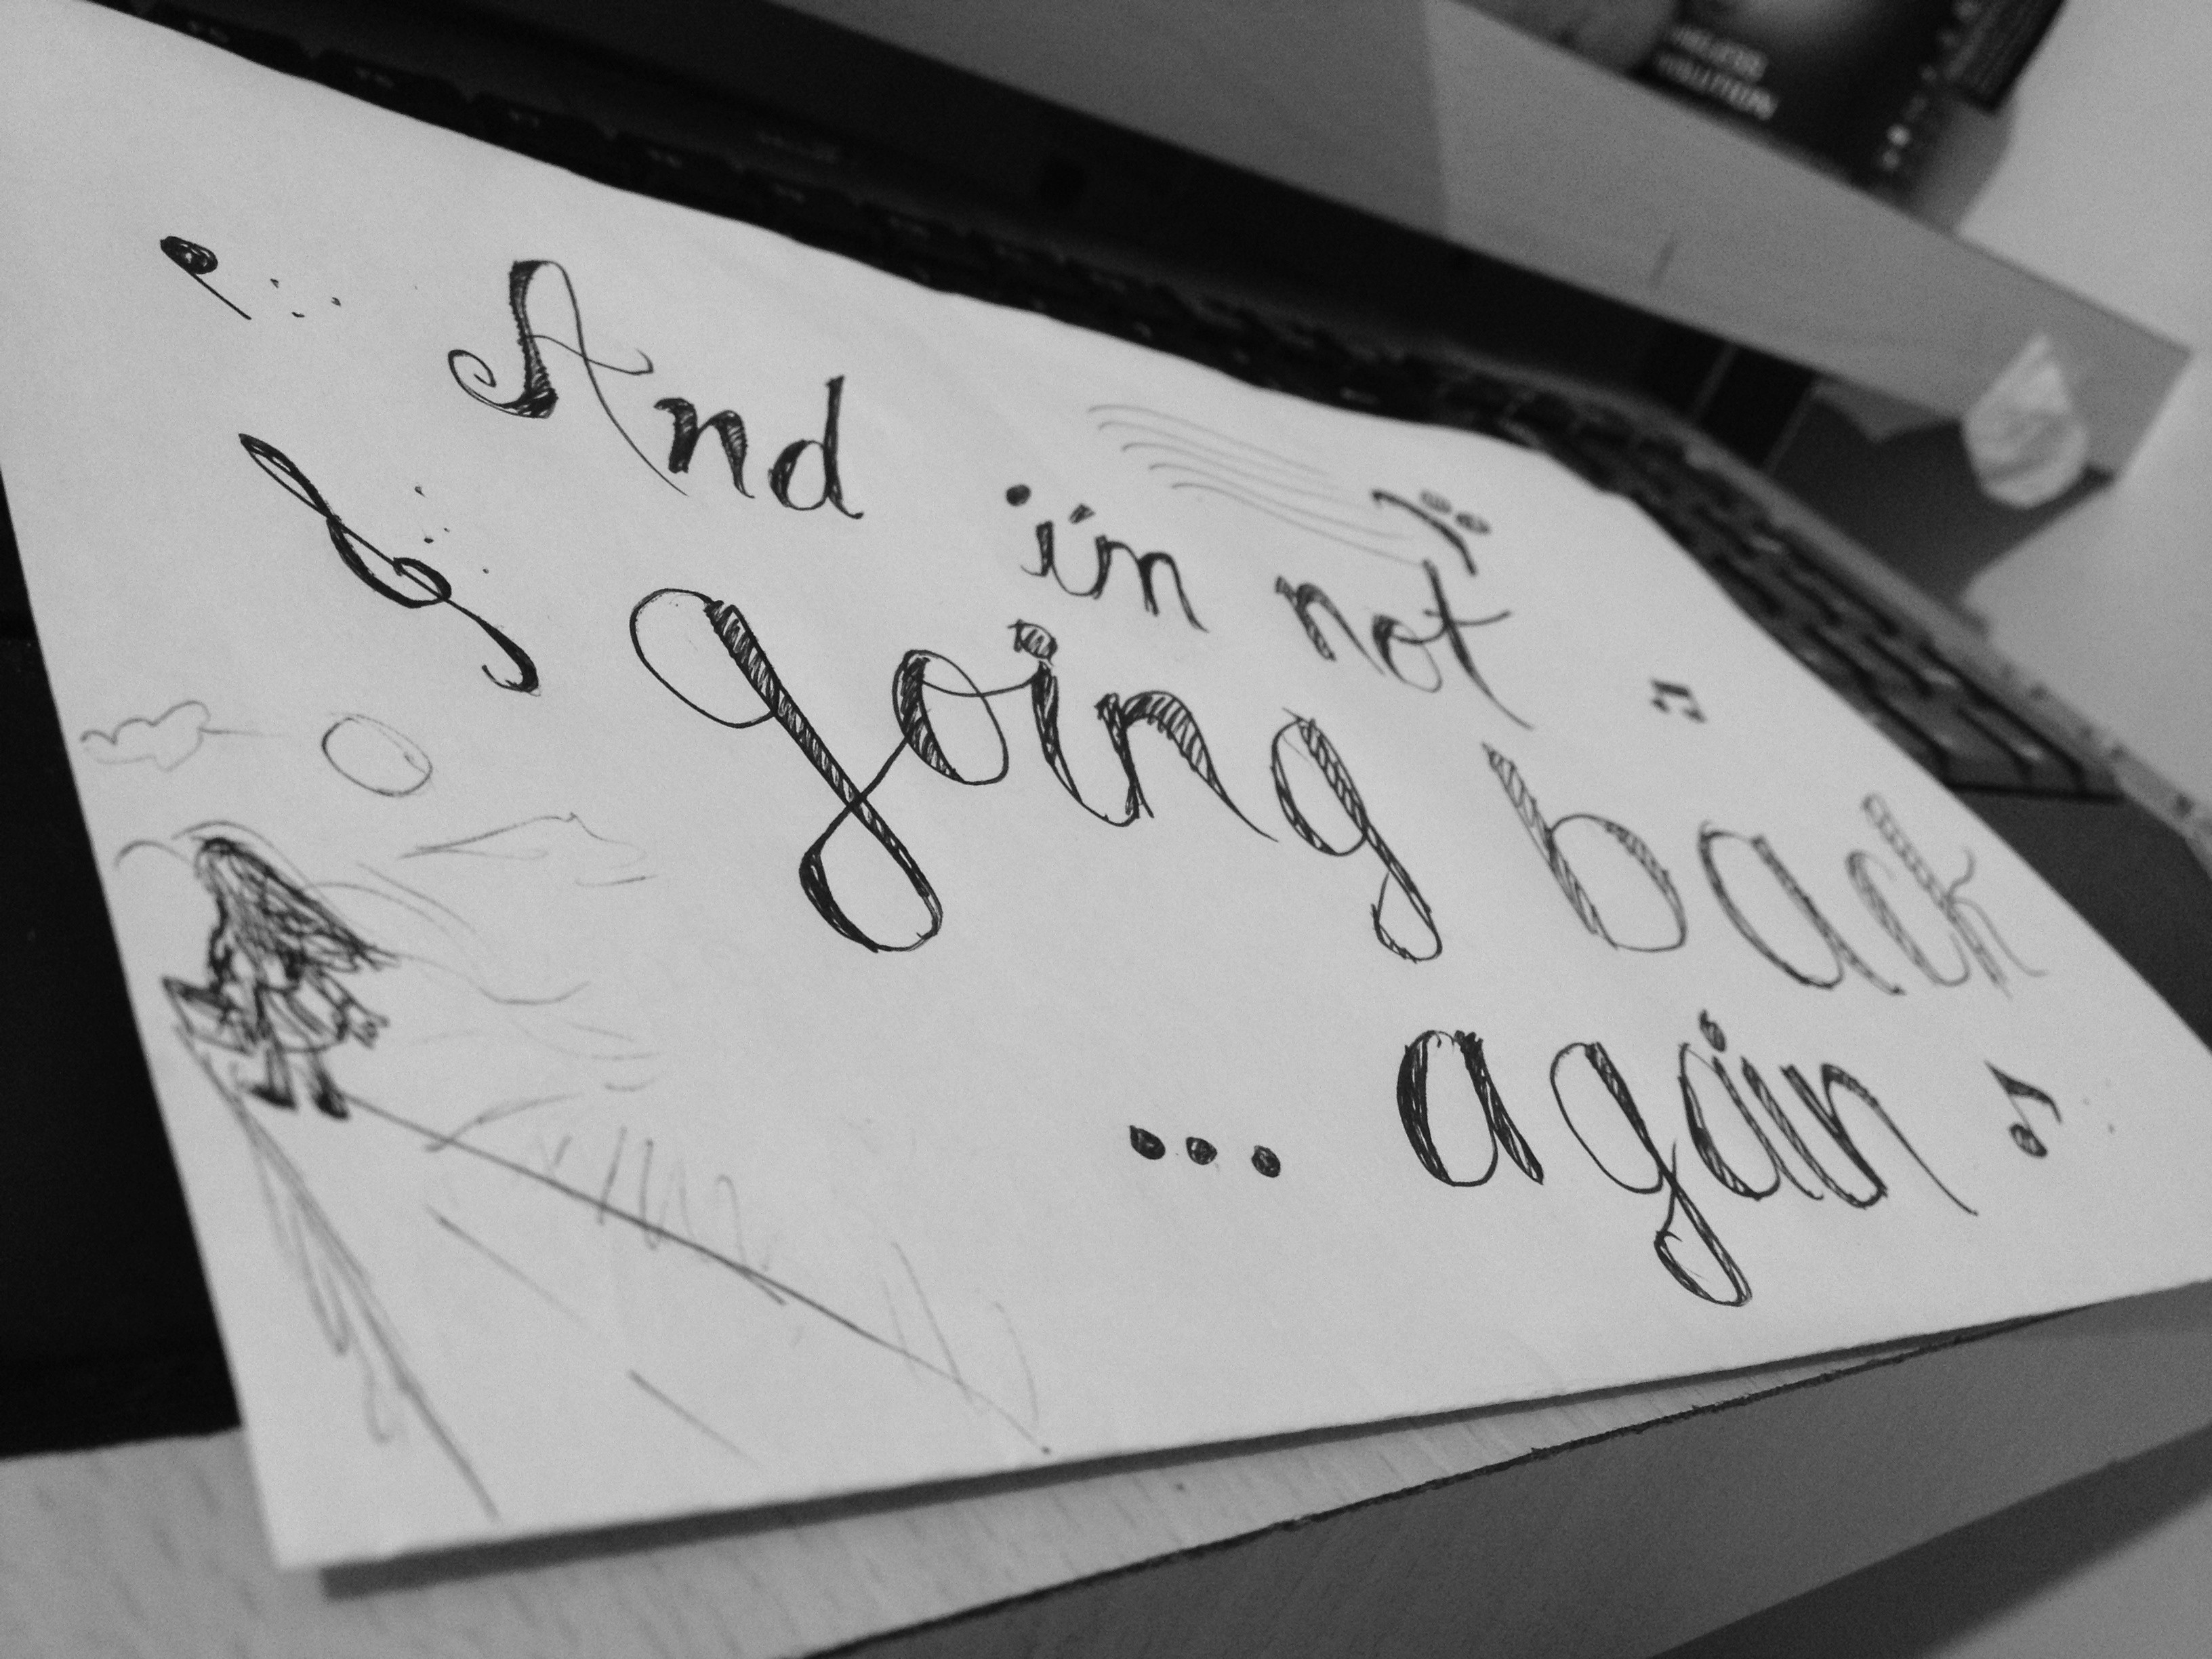 And i'm not
going back
... again